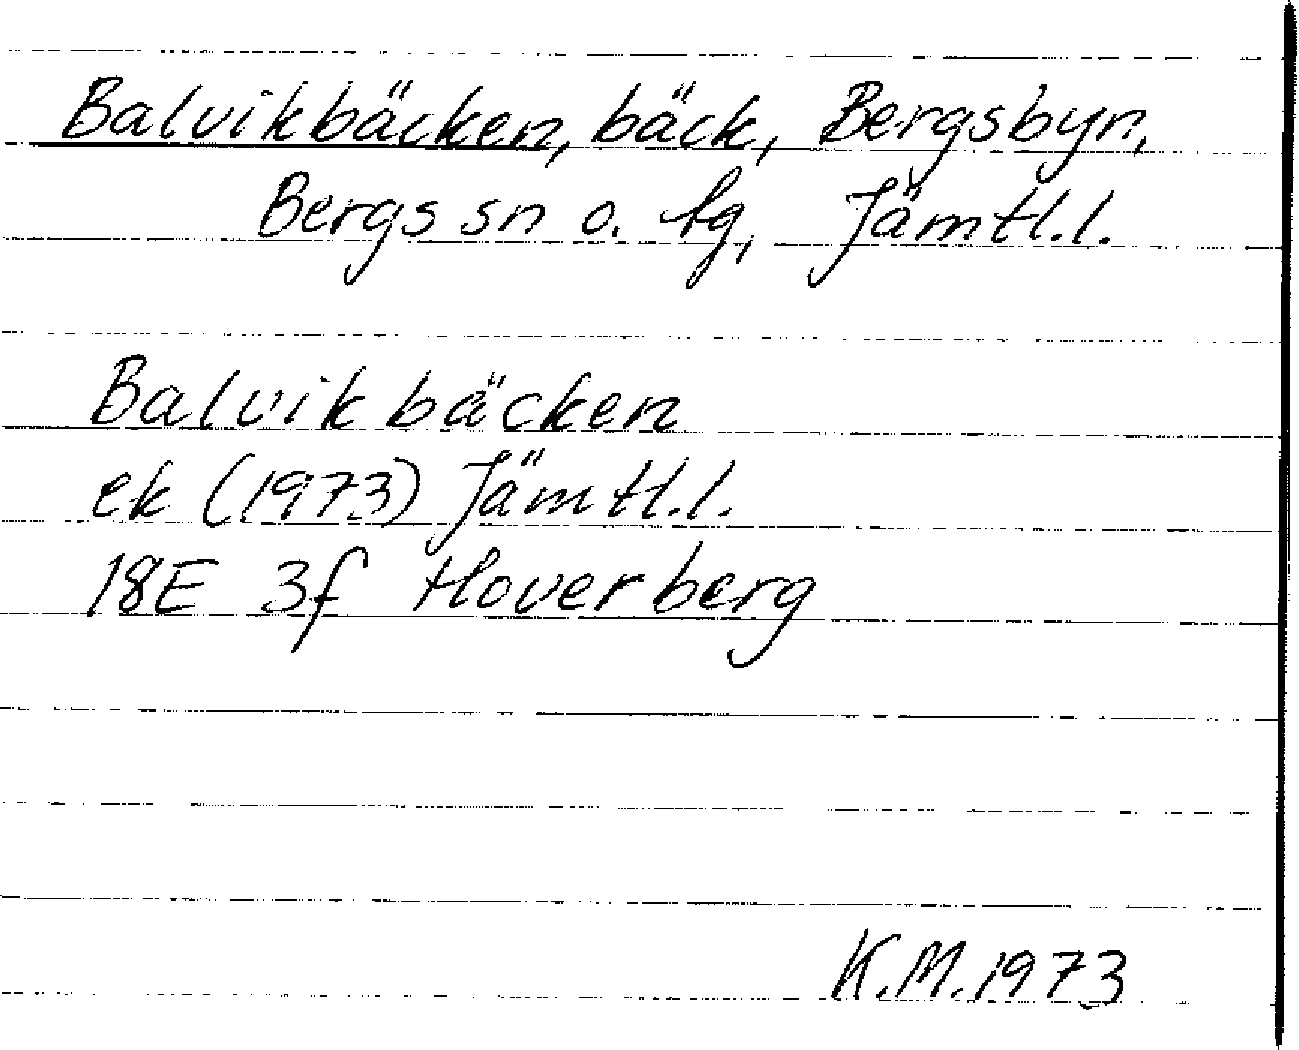 Balvikbäcken, bäck, Bergsbyn,
Bergs sn o. tg, Jämtl.l.
Balvikbäcken
ek (1973) Jämtl.l.
18E 3f Hoverberg
K.M. 1973